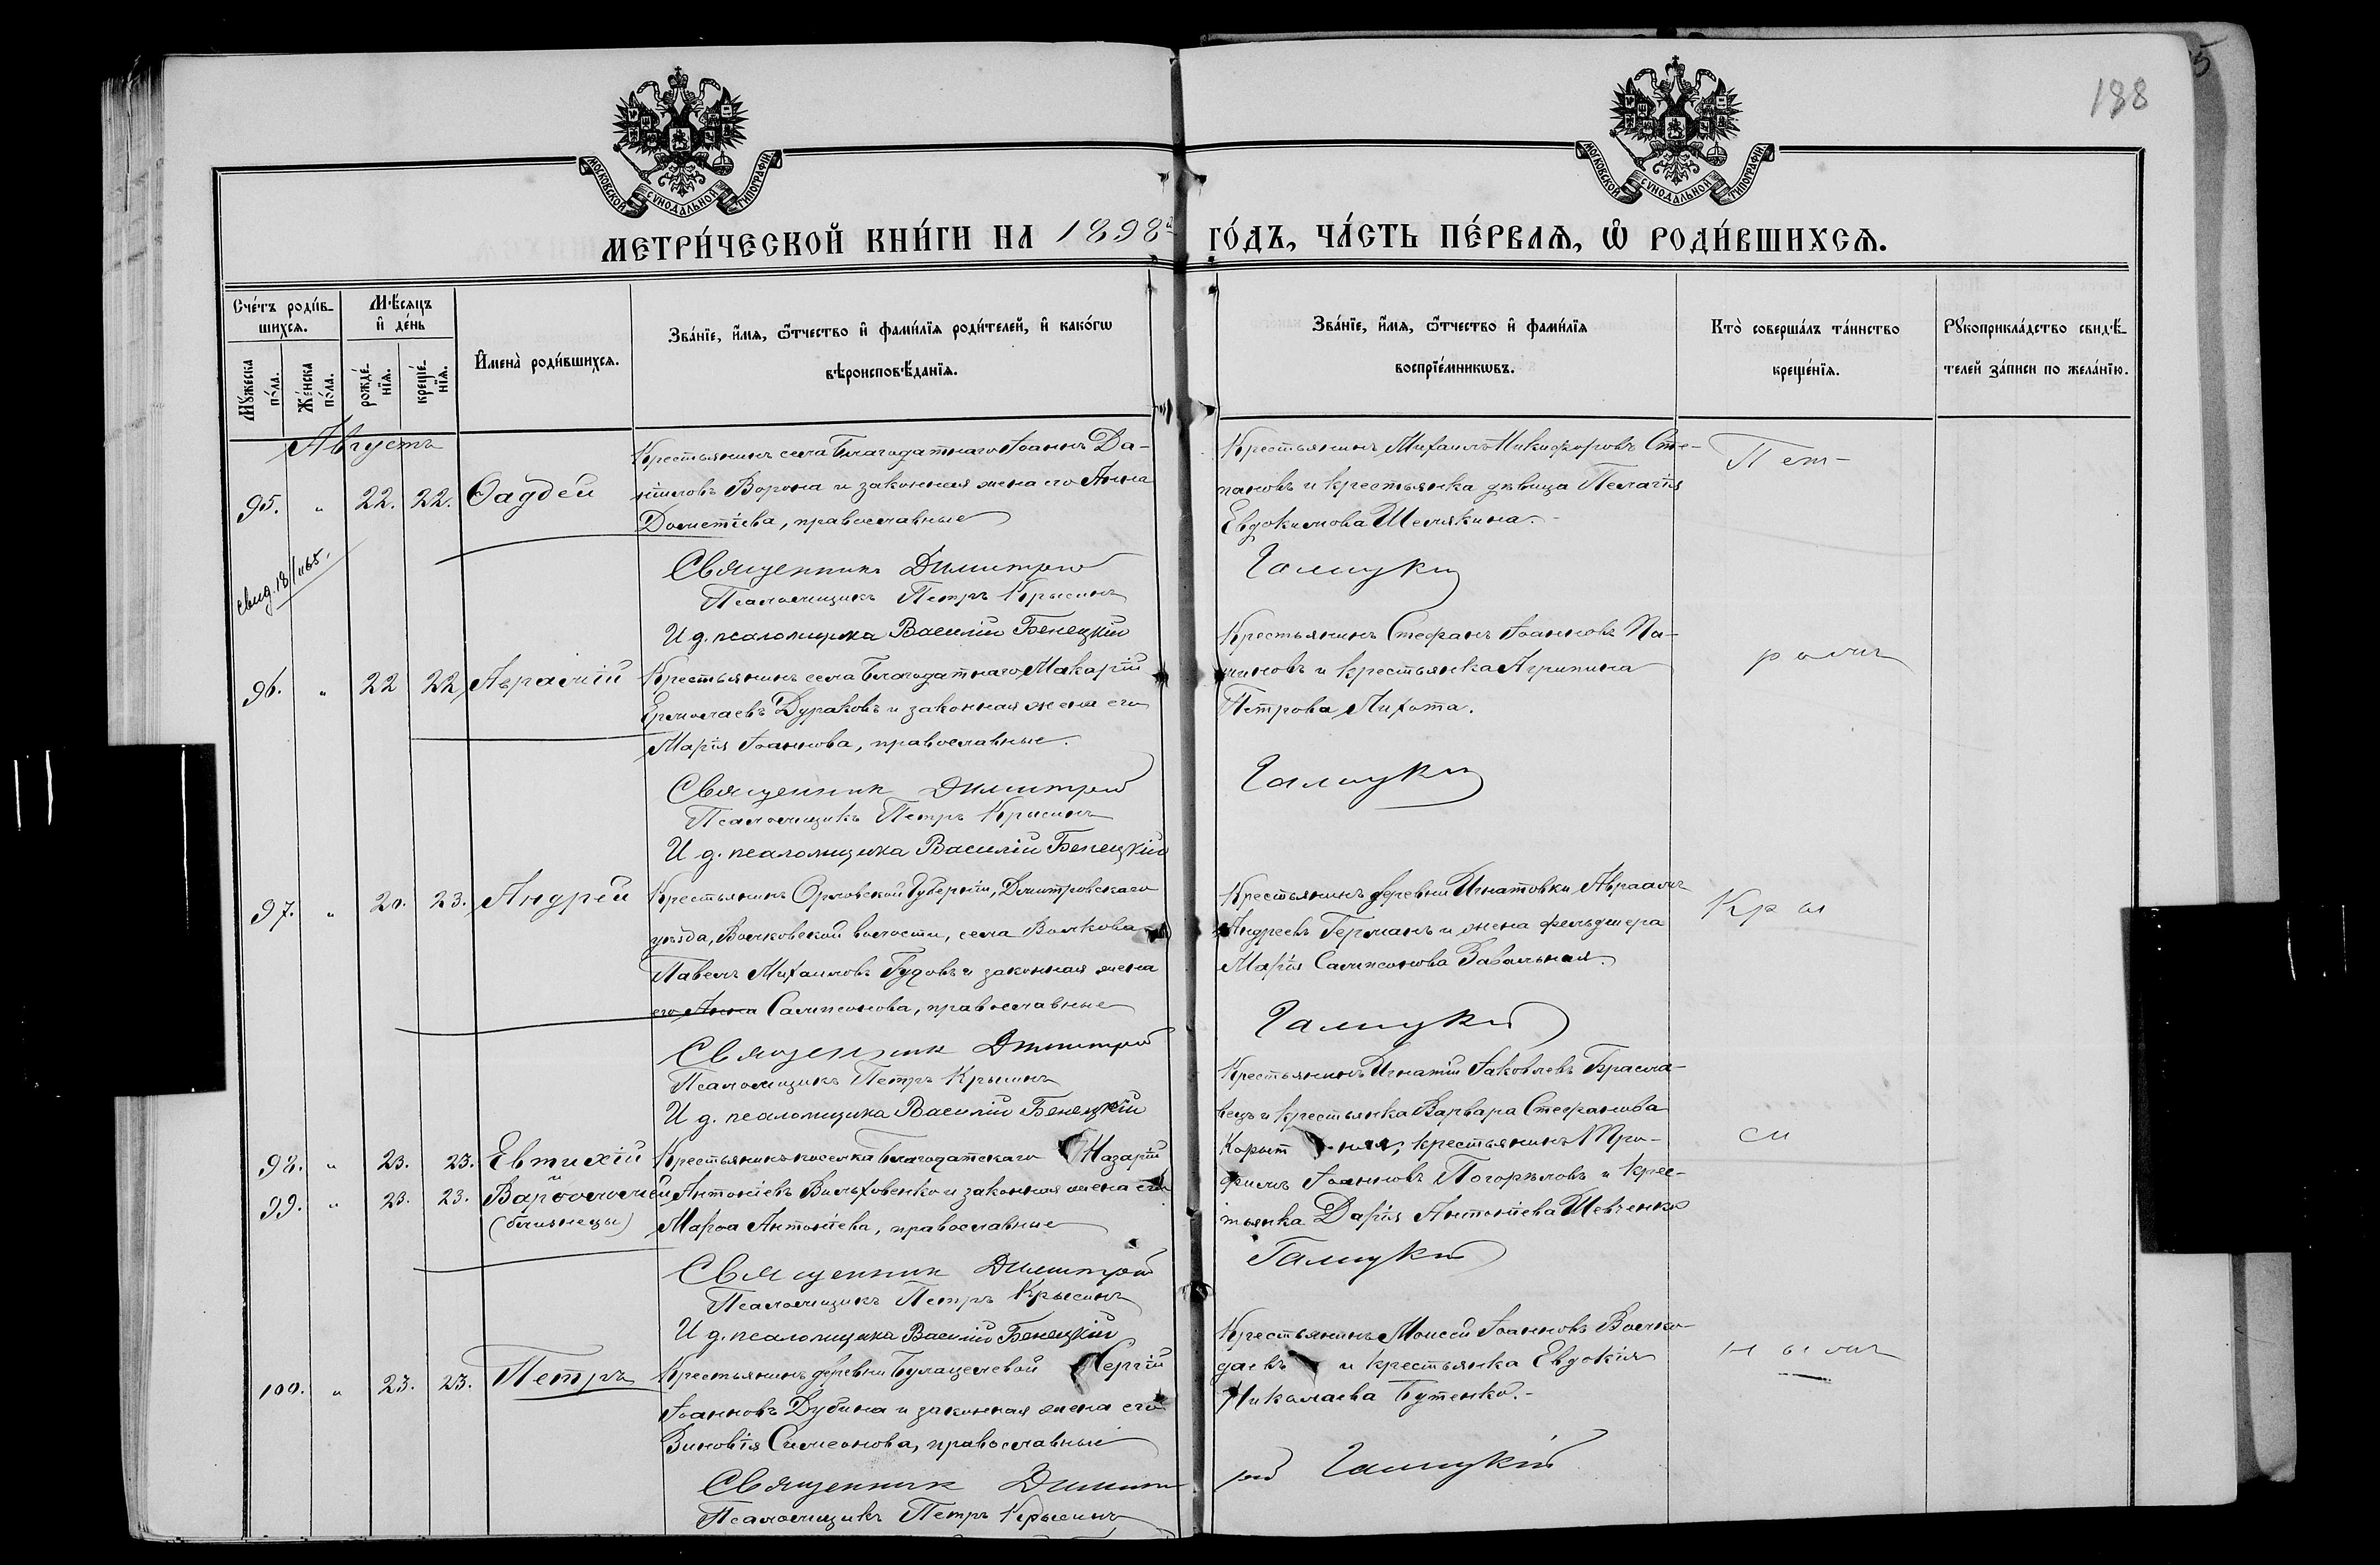 188
5
МОСКОВСКОЙ СѴНОДАЛЬНОЙ ТИПОГРАФІИ
МОСКОВСКОЙ СѴНОДАЛЬНОЙ ТИПОГРАФІИ
МЕТРИ́ЧЕСКОЙ КНИ́ГИ НА 1898й ГО́ДЪ, ЧА́СТЬ ПЕ́РВАѦ, Ѽ РОДИ́ВШИХСѦ.
Сче́тъ роди́в-
шихсѧ.
Мꙋ́жеска
по́ла.
Же́нска
по́ла.
Мѣ́сѧцъ
и҆ де́нь
рожде́-
нїѧ.
креще́-
нїѧ.
И҆мена̀ роди́вшихсѧ.
Зва́нїе, и҆́мѧ, ѻ҆́тчество и҆ фами́лїѧ роди́телей, и҆ како́гѡ
вѣроисповѣ́данїѧ.
Зва́нїе, и҆́мѧ, ѻ҆́тчество и҆ фами́лїѧ
воспрїе́мникѡвъ.
Кто̀ соверша́лъ та́инство
креще́нїѧ.
Рꙋкоприкла́дство свидѣ́-
телей за́писи по жела́нїю.
Августъ
95. " 22. 22. Ѳаддей
Крестьянинъ села Благодатнаго Іоаннъ Да-
ніиловъ Ворона и законная жена его Анна
Дометіева, православные
Крестьянинъ Михаилъ Никифоровъ Сте-
пановъ и крестьянка дѣвица Пелагія
Евдокимова Шемякина.-
Пет-
свид. 18/1165.
Священникъ Димитрій Галицкій
Псаломщикъ Петръ Крысинъ
И д. псаломщика Василій Бенецкій
96. " 22 22 Авраамій
Крестьянинъ села Благодатнаго Макарій
Ермолаевъ Дураковъ и законная жена его
Марія Іоаннова, православные.
Крестьянинъ Стефанъ Іоанновъ Па-
ниновъ и крестьянка Агрипина
Петрова Лихота.
ромъ
Священникъ Димитрій Галицкій
Псаломщикъ Петръ Крысинъ
И д. псаломщика Василій Бенецкій
97. " 20. 23. Андрей
Крестьянинъ Орловской Губерніи, Дмитровскаго
уѣзда, Волковской волости, села Волкова
Павелъ Михаиловъ Гудовъ и законная жена
его Анна Сампсонова, православные
Крестьянинъ деревни Игнатовки Авраамъ
Андреевъ Германъ и жена фельдшера
Марія Сампсонова Завальная.
Кры
Священникъ Димитрій Галицкій
Псаломщикъ Петръ Крысинъ
И д. псаломщика Василій Бенецкій
98. " 23. 23. Евтихій
99. " 23. 23. Варѳоломей
(близнецы)
Крестьянинъ поселка Благодатскаго Назарій
Антоніевъ Вильховенко и законная жена его
Марѳа Антоніева, православные
Крестьянинъ Игнатій Іаковлевъ Брасла-
вецъ и крестьянка Варвара Стефанова
крестьянинъ Тро-
фимъ Іоанновъ Погорѣловъ и крес-
тьянка Дарія Антоніева Шевченко
си
Священникъ Димитрій Галицкій
Псаломщикъ Петръ Крысинъ
И д. псаломщика Василій Бенецкій
100. " 23. 23. Петръ
Крестьянинъ деревни Булацелевой Сергій
Іоанновъ Дубина и законная жена его
Зиновія Симеонова, православные
Крестьянинъ Моисей Іоанновъ Волко-
даевъ и крестьянка Евдокія
Николаева Бутенко.-
нымъ
Священникъ Димит рій Галицкій
Псаломщикъ Петръ Крысинъ